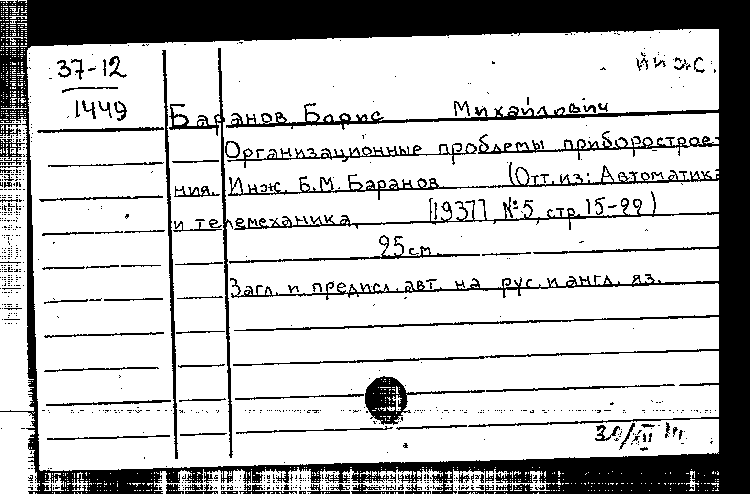 37-12
1449
Баранов, Борис Михайлович
Организационные проблемы приборострое-
ния. Инж. Б.М. Баранов (Отт. из: Автоматика
и телемеханика, [1937], №5, стр. 15-22)
25 см.
Загл. и предисл. авт. на рус. и англ. яз.
30/XII